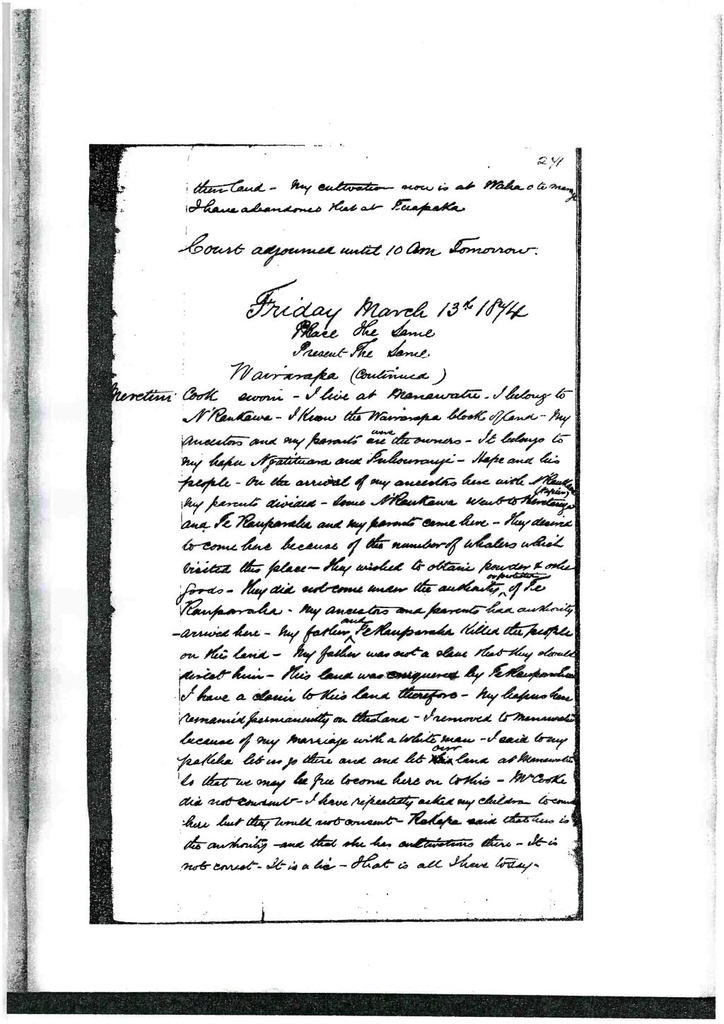 241
this land - My cultivation now is at Waha o te marangi
I have abandoned that at Tuapaka
Court adjourned until 10 Am Tomorrow.
Friday March 13th 1874
Place The Same
Present The Same
Wairarapa (Continued)
Meretini Cook sworn - I live at Manawatu - I belong to
N'Raukawa - I know the Wairarapa block of land - My
ancestors and my parents were the owners - It belongs to
my hapu Ngatituara and - Hape and his
people - On the arrival of my ancestors here with N'Raukawa
my parents divided - Some N'Raukawa went to Heretaunga (Napier)
and Te Rauparaha and my parents came here - They desired
to come here because of the number of whalers which
visited this place - They wished to obtain powder & other
goods - They did not come under the authority of Te
Rauparaha - My ancestors and parents had authority
- arrived here - My father and Te Rauparaha killed the people
on this land - My father was not a slave that they should
direct him - This land was conquered by Te Rauparaha
I have a claim to this land therefore - My hapus have
remained permanently on this land - I removed to Manawatu
because of my marriage with a white man - I said to my
pakeha let us go there and and let our land at Manawatu
So that we may be free to come here on to this - Mr Cooke
did not consent - I have repeatedly asked my children to come
here but they would not consent - said that hers is
the authority - and that she has cultivations there - It is
not correct - It is a lie - That is all I have to say -